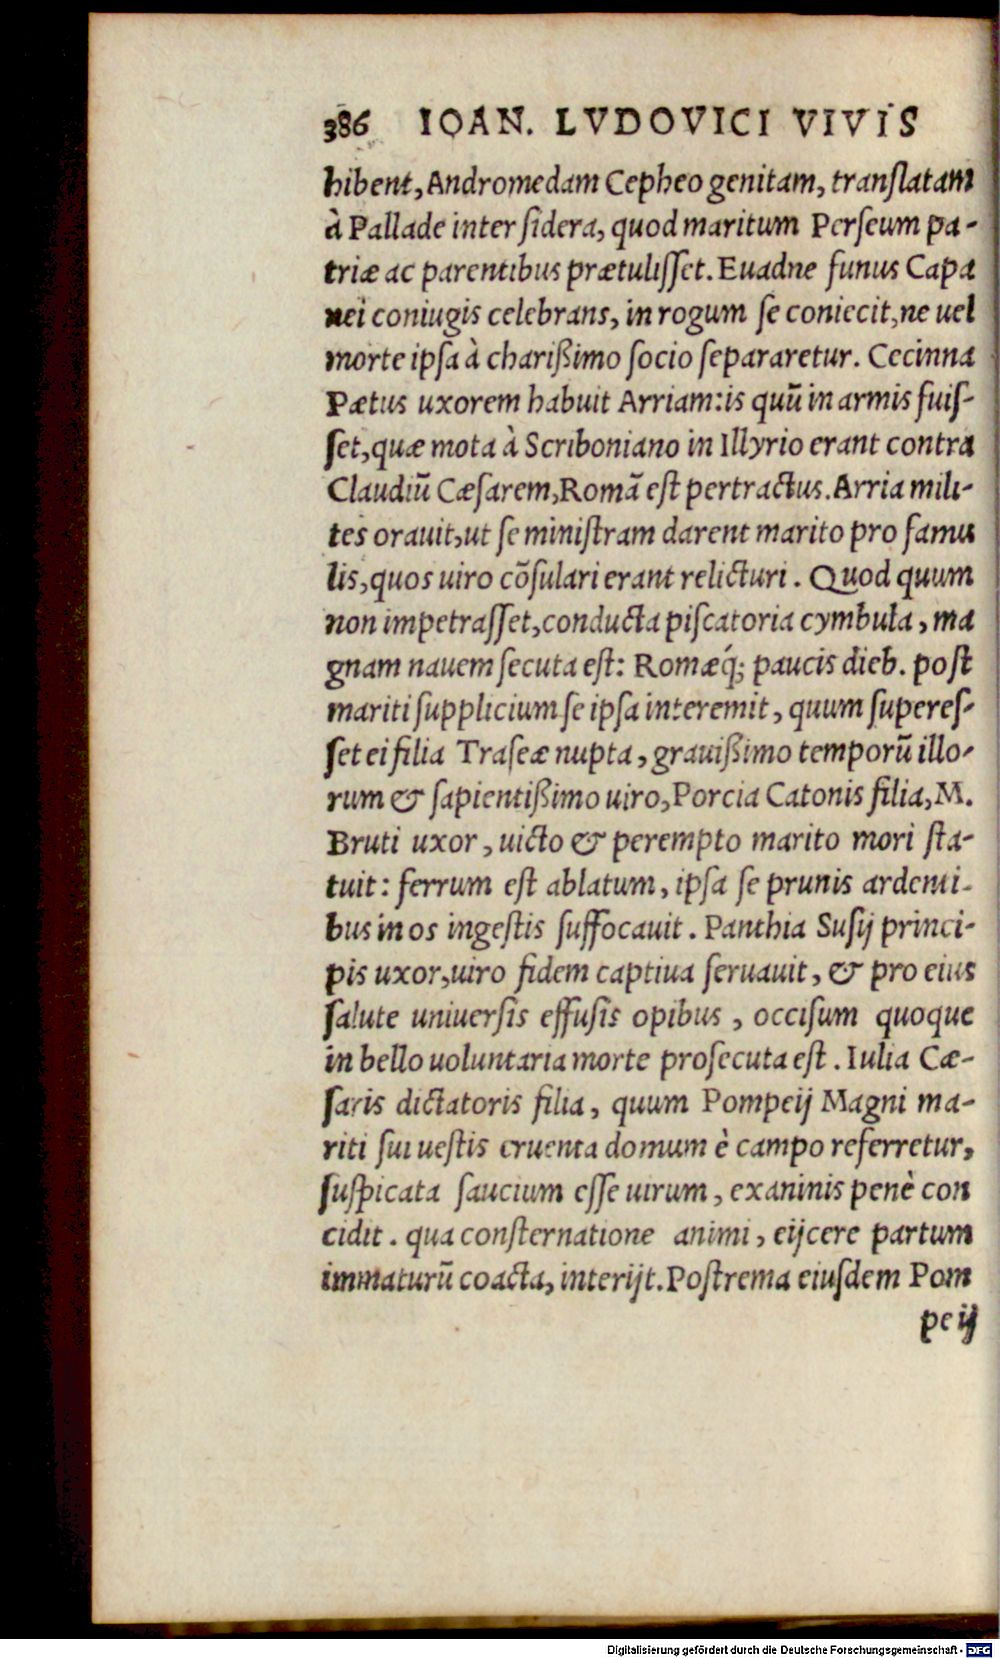 386 IOAN. LVDOVICI VIVIS
hibent, Andromedam Cepheo genitam, tranſlatam
à Pallade inter ſidera, quod maritum Perſeum pa-
triæ ac parentibus prætuliſſet. Euadne funus Capa
nei coniugis celebrans, in rogum ſe coniecit, ne uel
morte ipſa à charißimo ſocio ſepararetur. Cecinna
Pætus uxorem habuit Arriam: is quū in armis fuiſ-
ſet, quæ mota à Scriboniano in Illyrio erant contra
Claudiū Cæſarem, Romā eſt pertractus. Arria mili-
tes orauit, ut ſe miniſtram darent marito pro famu
lis, quos uiro cōſulari erant relicturi. Quod quum
non impetraſſet, conducta piſcatoria cymbula, ma
gnam nauem ſecuta eſt: Romæq́; paucis dieb. poſt
mariti ſupplicium ſe ipſa interemit, quum ſupereſ-
ſet ei filia Traſeæ nupta, grauißimo temporū illo-
rum & ſapientißimo uiro, Porcia Catonis filia, M.
Bruti uxor, uicto & perempto marito mori ſta-
tuit: ferrum eſt ablatum, ipſa ſe prunis ardenti-
bus in os ingeſtis ſuffocauit. Panthia Suſij princi-
pis uxor, uiro fidem captiua ſeruauit, & pro eius
ſalute uniuerſis effuſis opibus, occiſum quoque
in bello uoluntaria morte proſecuta eſt. Iulia Cæ-
ſaris dictatoris filia, quum Pompeij Magni ma-
riti ſui ueſtis cruenta domum è campo referretur,
ſuſpicata ſaucium eſſe uirum, exaninis penè con
cidit. qua conſternatione animi, eijcere partum
immaturū coacta, interijt. Poſtrema eiuſdem Pom
peij
Digitalisierung gefördert durch die Deutsche Forschungsgemeinschaft - DFG